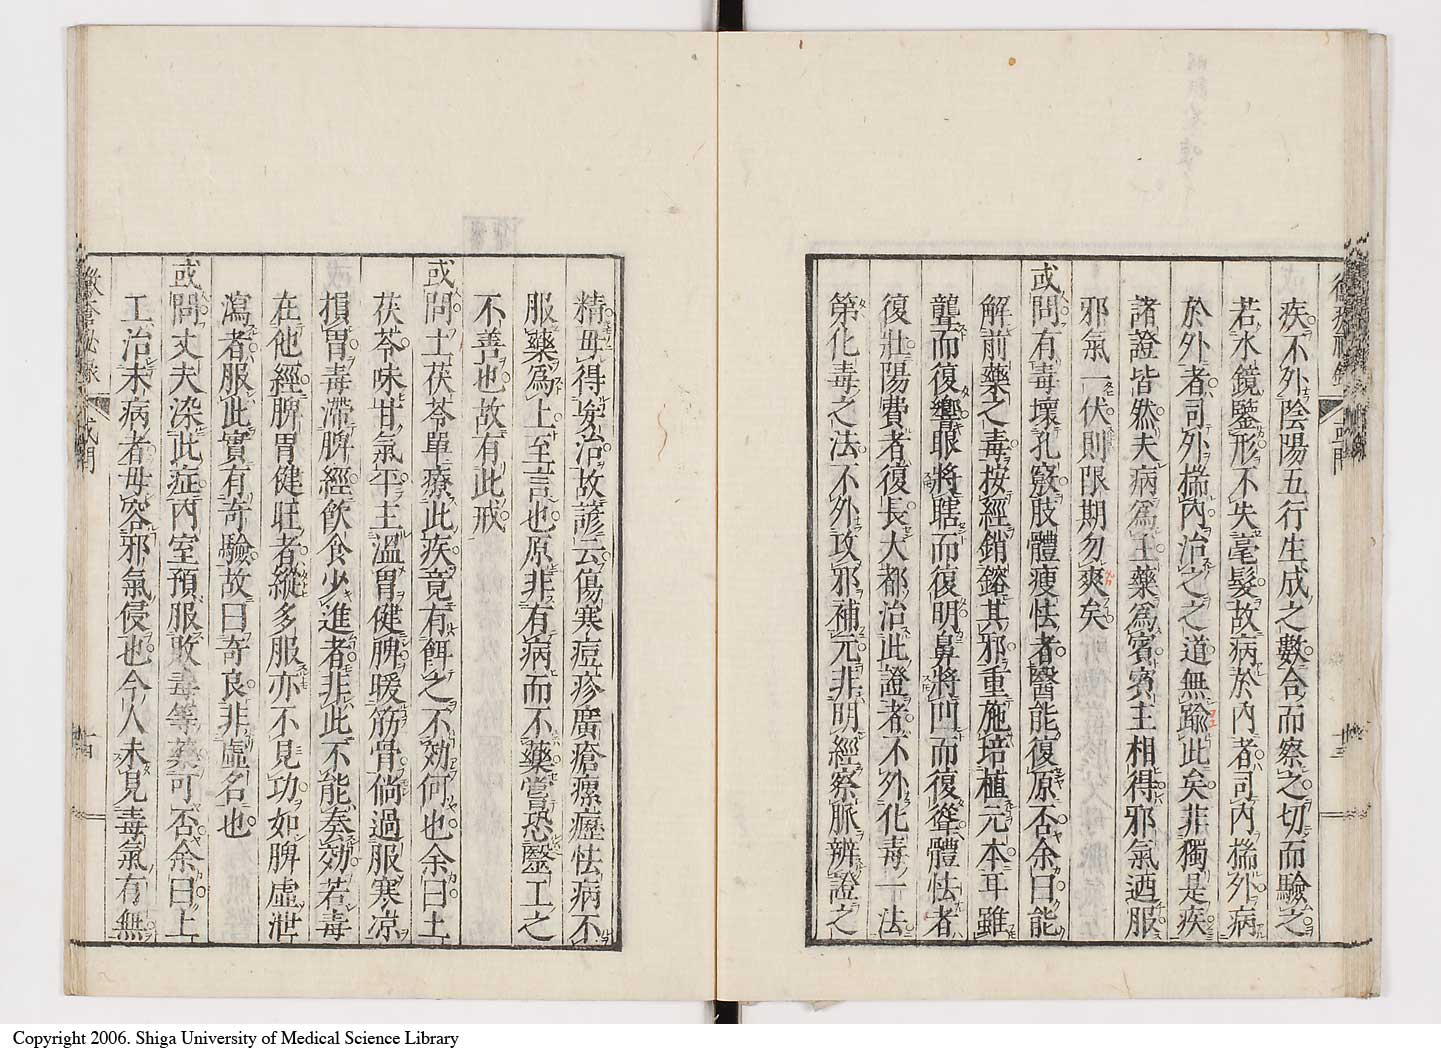 疾不外陰陽五行生成之數合而察之切而驗之
若水鏡鑒形不失毫髮故病於內者司內揣外病
於外者司外揣內治之之道無踰此矣非獨是疾
諸證皆然夫病為主藥為賓賓主相得邪氣迺服
邪氣一伏則限期勿爽矣
或問有毒壞孔竅肢體痩怯者醫能復原否余曰能
解前藥之毒按經銷鎔其邪重施培植元本耳雖
聾而復響眼將瞎而復明鼻將凹而復聳體怯者
復壯陽費者復長大都治此證者不外化毒一法
第化毒之法不外攻邪補元非明經察脈辨證之
精毋得妄治故諺云傷寒痘疹廣瘡瘰癧怯病不
服藥為上至言也原非有病而不藥嘗恐醫工之
不善也故有此戒
或問土茯苓單療此疾竟有餌之不効何也余曰土
茯苓味甘氣平主溫胃健脾暖筋骨倘過服寒凉
損胃毒滯脾經飲食少進者非此不能奏効若毒
在他經脾胃健旺者縱多服亦不見功如脾虛泄
瀉者服此實有奇驗故曰奇良非虛名也
或問丈夫染此症內室預服敗毒等藥可否余曰上
工治未病者毋容邪氣侵也今人未見毒氣有無
黴瘡秘錄 或問
Copyright 2006. Shiga University of Medical Science Library